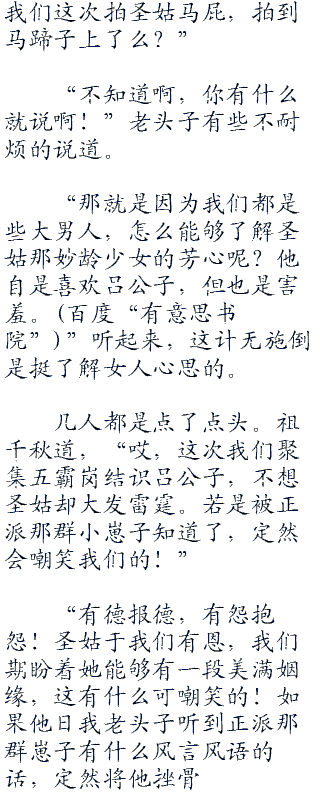 我们这次拍圣姑马屁，拍到
马蹄子上了么？”
“不知道啊，你有什么
就说啊！”老头子有些不耐
烦的说道。
“那就是因为我们都是
些大男人，怎么能够了解圣
姑那妙龄少女的芳心呢？他
自是喜欢吕公子，但也是害
羞。（百度“有意思书
院”）”听起来，这计无施倒
是挺了解女人心思的。
几人都是点了点头。祖
千秋道，“哎，这次我们聚
集五霸岗结识吕公子，不想
圣姑却大发雷霆。若是被正
派那群小崽子知道了，定然
会嘲笑我们的！”
“有德报德，有怨抱
怨！圣姑于我们有恩，我们
期盼着她能够有一段美满姻
缘，这有什么可嘲笑的！如
果他日我老头子听到正派那
群崽子有什么风言风语的
话，定然将他挫骨